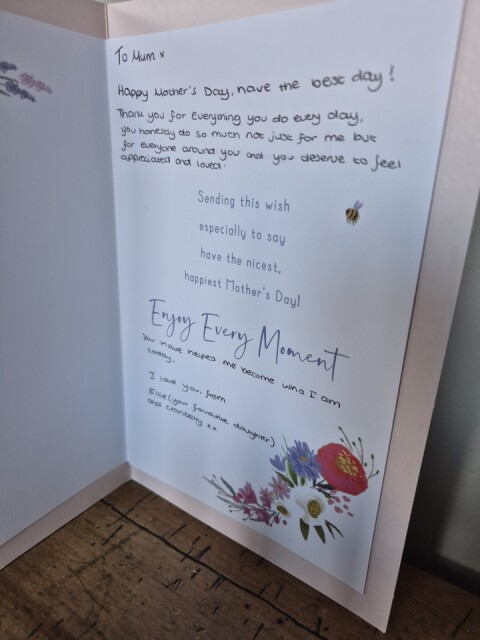 To Mum x
Happy Mother's Day, have the best day!
Thank you for everything you do every day,
you honestly do so much not just for me but
for everyone around you and you deserve to feel
appreciated and loved.
Sending this wish
especially to say
have the nicest,
happiest Mother's Day!
Enjoy Every Moment
You have helped me become who I am
today.
I love you, from
Ellie (your favourite daughter)
and Cranberry xx